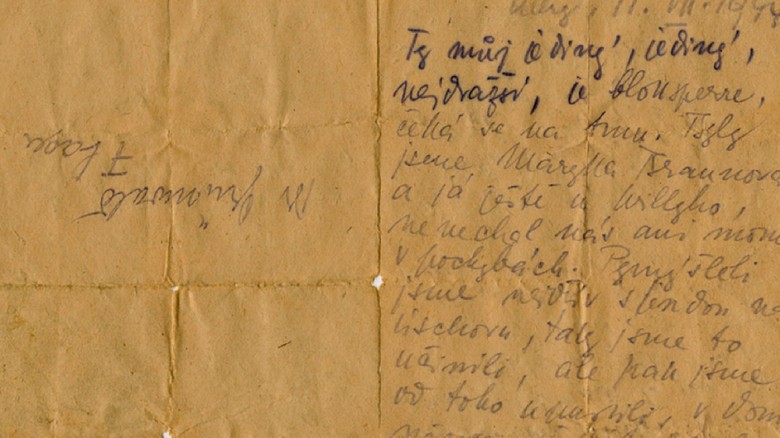 11. VII. 1944
Ty můj jediný, jediný,
nejdražší, je blocksperre,
čeká se na tmu. Byly
jsme Márynka Braunová
a já ještě u Willyho,
nenechal nás ani
v pochybách. Pomýšleli
jsme nejdřív s Jendou
Fischern, taky jsme to
učinili, ale pak jsme
od toho upustili, v
Dr Grünwald